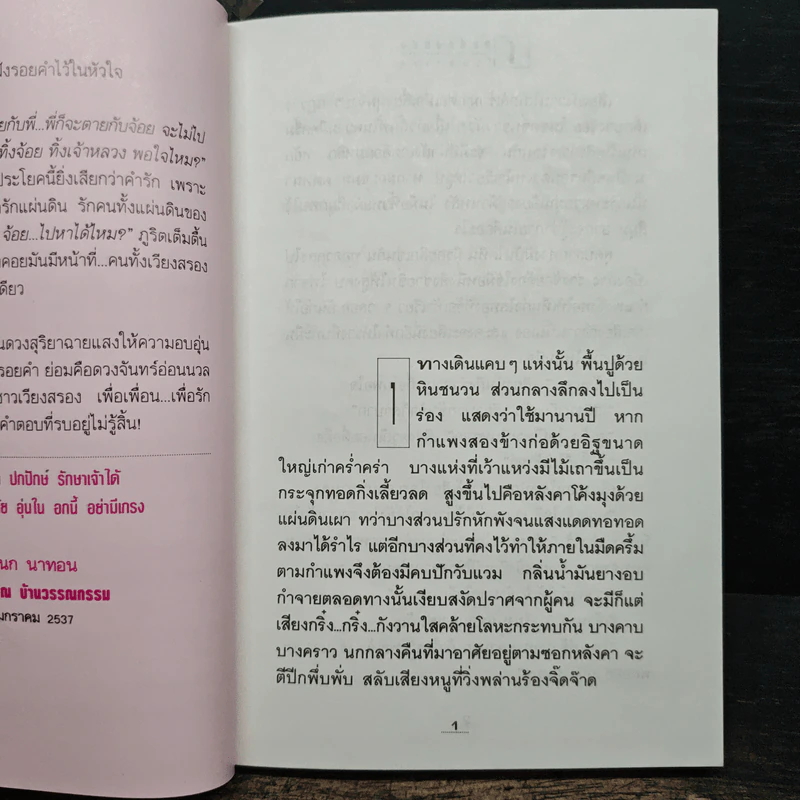 รอยคำไว้ในหัวใจ
ยกับพี่...พี่ก็จะตายกับจ้อย จะไม่ไป
ทิ้งจ้อย ทิ้งเจ้าหลวง พอใจไหม?"
ประโยคนี้ยิ่งเสียกว่าคำรัก เพราะ
รักแผ่นดิน รักคนทั้งแผ่นดินของ
จ้อย...ไปหาได้ไหม?" ภูริตเต็มตื้น
คอยมันมีหน้าที่...คนทั้งเวียงสรอง
ดียว
นดวงสุริยาฉายแสงให้ความอบอุ่น
รอยคำ ย่อมคือดวงจันทร์อ่อนนวล
ชาวเวียงสรอง เพื่อเพื่อน...เพื่อรัก
คำตอบที่รบอยู่ไม่รู้สิ้น!
ปกปักษ์ รักษาเจ้าได้
อุ่นใน อกนี้ อย่ามีเกรง
นก นาทอน
ณ บ้านวรรณกรรม
มกราคม 2537
1
ทางเดินแคบๆ แห่งนั้น พื้นปูด้วย
หินชนวน ส่วนกลางลึกลงไปเป็น
ร่อง แสดงว่าใช้มานานปี หาก
กำแพงสองข้างก่อด้วยอิฐขนาด
ใหญ่เก่าคร่ำคร่า บางแห่งที่เว้าแหว่งมีไม้เถาขึ้นเป็น
กระจุกทอดกิ่งเลี้ยวลด สูงขึ้นไปคือหลังคาโค้งมุงด้วย
แผ่นดินเผา ทว่าบางส่วนปรักหักพังจนแสงแดดทอทอด
ลงมาได้รำไร แต่อีกบางส่วนที่คงไว้ทำให้ภายในมืดครึ้ม
ตามกำแพงจึงต้องมีคบปักวับแวม กลิ่นน้ำมันยางอบ
กำจายตลอดทางนั้นเงียบสงัดปราศจากผู้คน จะมีก็แต่
เสียงกริ๋ง...กริ๋ง...กังวานใสคล้ายโลหะกระทบกัน บางคาบ
บางคราว นกกลางคืนที่มาอาศัยอยู่ตามซอกหลังคา จะ
ตีปีกพึ่บพั่บ สลับเสียงหนูที่วิ่งพล่านร้องจิ๊ดจ๊าด
1